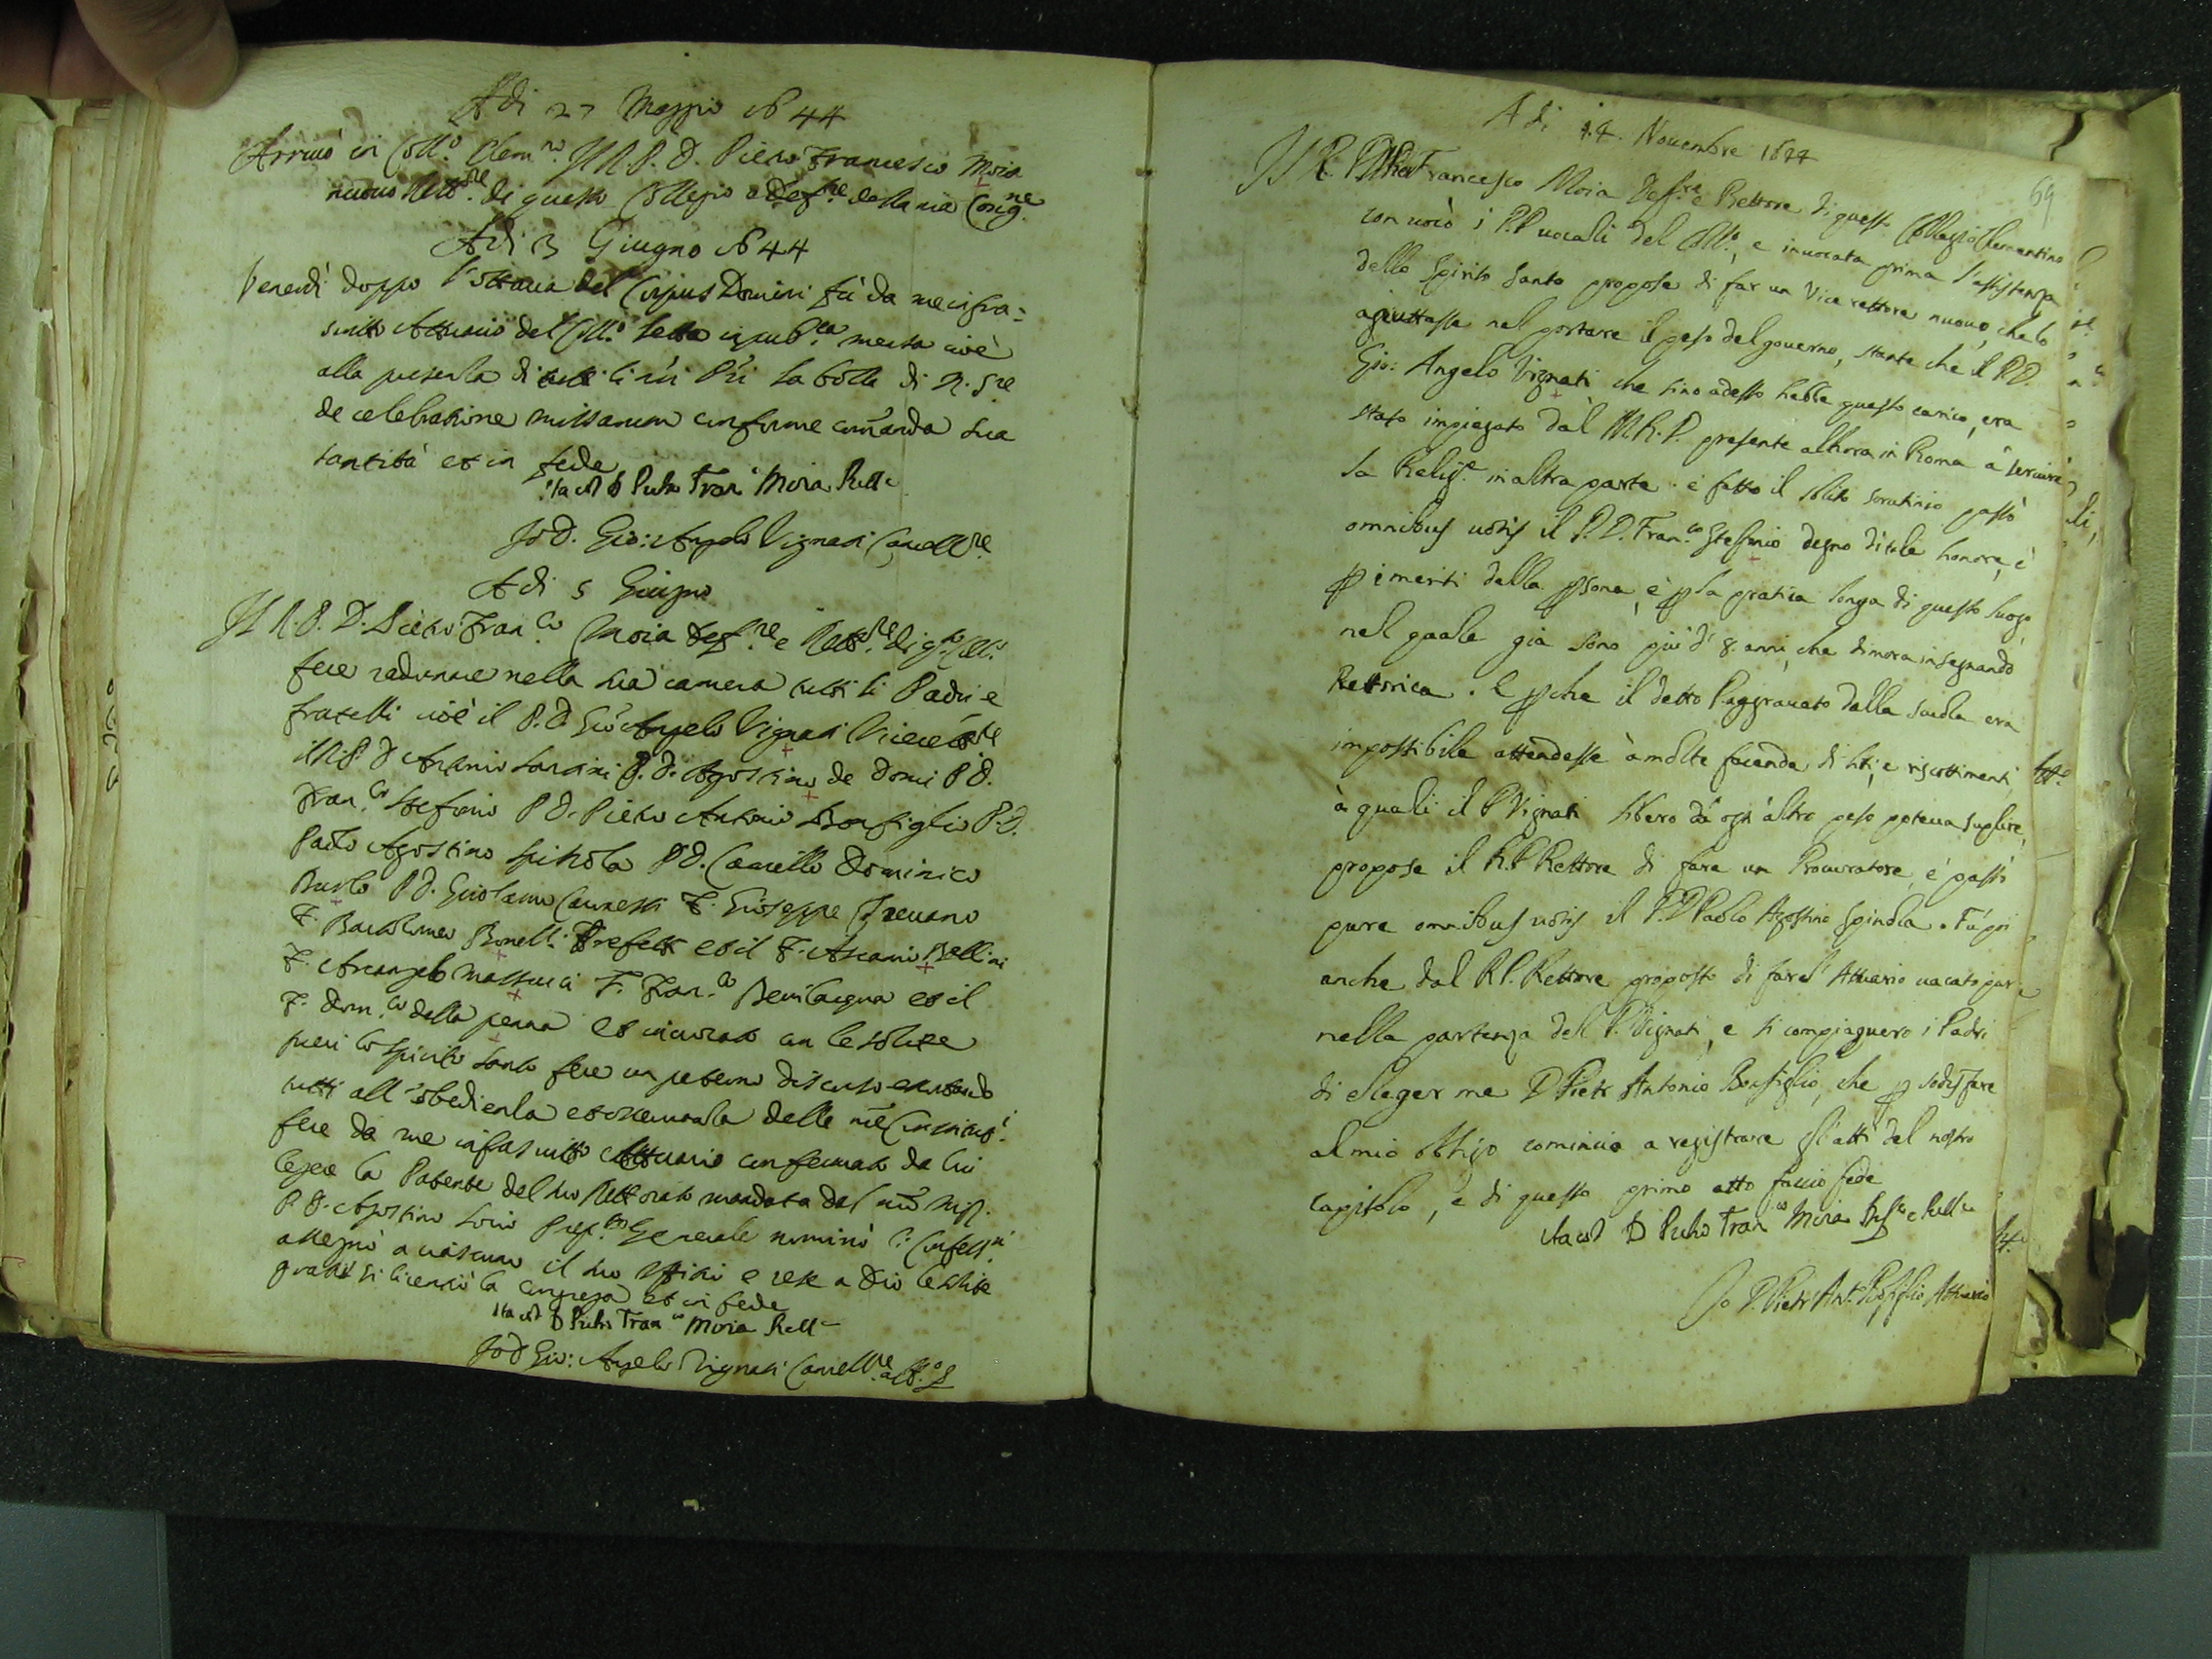 Adi 27 Maggio 1644
Arriuò in Coll.o Clem.no Il R. P. D. Pietro Francesco Moia
nuouo Rett.re di questo Collegio e Def.re della nra Cong.ne
Adi 3 Giugno 1644
Venerdì doppo l'ottaua del Corpus Domini fù da me infra=
scritto Attuario del Coll.o letta in pub.ca mensa cioè
alla presenza di tutti li nri Pri la bolla di N. Sre
de celebratione missarum conforme comanda sua
santità et in fede
Ita est D Pietro Fran.o Moia Rett.e
Io D. Gio: Angelo Vignati Cancell.re
Adi 5 Giugno
Il R. P. D. Pietro Fran.co Moia Def.re e Rett.re di q.to Coll.o
fece radunare nella sua camera tutti li Padri e
fratelli cioè il P. D. Gio Angelo Vignati Vicerett.re
il P. D Antonio P. D. Agostino de Domi P D.
Fran.co Stefanio P D. Pietro Antonio Bonfiglio P. D.
Paolo Agostino Spinola P D. Camillo Dominico
P D. Girolamo F. Gioseppe
F. Bartolomeo Bonelli Prefetti et il F. Ascanio Bellini
F. Arcangelo Massucci F. Fran.co Beuilacqua et il
F. Dom.co della penna et inuocato con le solite
preci lo spirito santo fece un paterno discorso esortando
tutti all'obedienza et osseruanza delle nre Constitut.i
fece da me infrascritto Attuario confermato da lui
legere la Patente del suo Rettorato mandata dal
P. D. Agostino Socio Prep.to Generale nominò i Confess.ri
assegnò a ciascuno il suo offitio e rese a Dio le solite
gratie si licentiò la et in fede
Ita est D Pietro Fran.co Moia Rett.e
Io D Gio: Angelo Vignati Cancell.re
Adi 14. Nouembre 1644
69
Il R. P. D Pietro Francesco Moia Def.re e Rettore di questo Collegio Clementino
conuocò i P.P uocali del Coll.o, e inuocata prima l'assistenza
dello Spirito Santo propose di far un Vice rettore nuouo, che lo
agiuttasse nel portare il peso del gouerno, stante che il P. D.
Gio: Angelo Vignati che sino adesso hebbe questo carico, era
stato impiegato dal M. R. P. presente allhora in Roma à seruire
la Relig.e in altra parte. e fatto il solito scrutinio passò
omnibus uotis il P. D. Fran.co Stefanio degno di tale honore, è
p i meriti della psona, è p la pratica longa di questo luogo,
nel quale già sono più di 8. anni, che dimora insegnando
Rettorica. E pche il detto P. aggrauato dalla scola era
impossibile attendesse à molte facende di liti, e riscottimenti
à quali il P Vignati libero da ogn'altro peso poteua suplire,
propose il R. P Rettore di fare un Procuratore, è passò
pure omnibus uotis il P. D Paolo Agostino Spinola. Fù poi
anche dal R P. Rettore proposto di fare l'Attuario uacato pure
nella partenza del P. Vignati, e si compiaquero i Padri
di eleger me D Pietr Antonio Bonfiglio, che p sodisfare
al mio obligo comincio a registrare gl'atti del nostro
Capitolo, e di questo primo atto faccio fede
Ita est D Pietro Fran.co Moia Def.re e Rett.e
Io D. Pietr Ant.o Bonfiglio Attuario